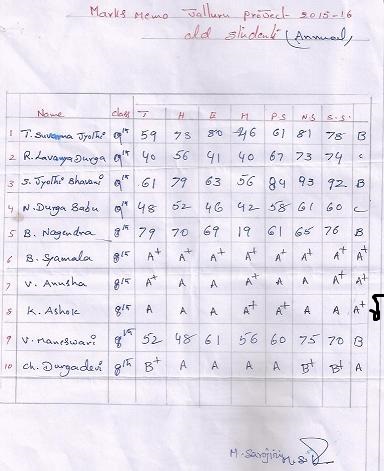 Marks Memo Valluru project 2015-16
old students (Annual)
Name class T H E M P.S N.S S.S.
1 T. Suvarna Jyothi 9th 59 78 80 46 61 81 78 B
2 R. Lavanya Durga 9th 40 56 41 40 67 73 74 C
3 S. Jyothi Bhavani 9th 61 79 63 56 84 93 92 B
4 N. Durga Babu 9th 48 52 46 42 58 61 60 C
5 B. Nagendra 8th 79 70 69 19 61 65 76 B
6 B. Syamala 8th A+ A+ A+ A+ A+ A+ A+ A+
7 V. Anusha 8th A+ A A A+ A A A+ A+
8 K. Ashok 8th A A A A+ A+ A A A+
9 V. Maneswari 9th 52 48 61 56 60 75 70 B
10 Ch. Durgadevi 8th B+ A A A A B+ B+ A
M. Sarojini